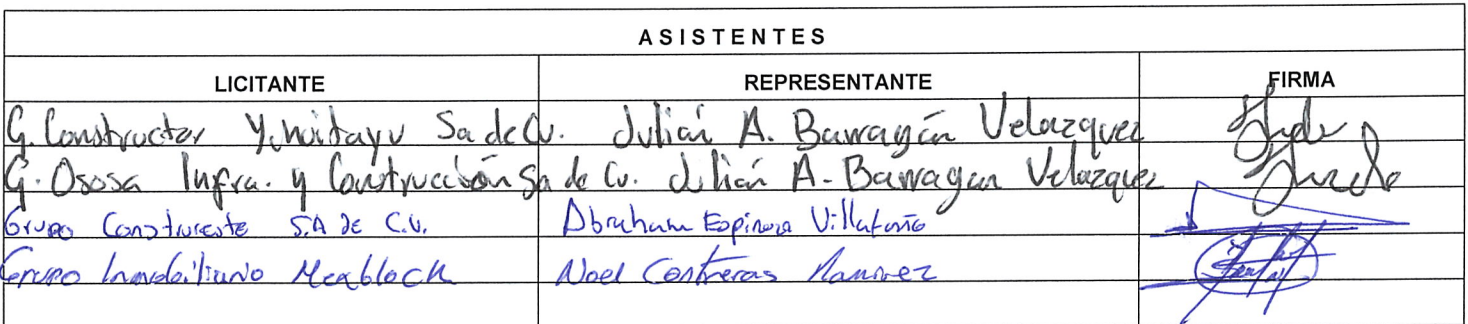 ASISTENTES
LICITANTE REPRESENTANTE FIRMA
G. Constructor Yuhuitayu Sa de Cv. Julián A. Barragán Velazquez
G. Ososa Infra. y Construcción Sa de Cv. Julián A. Barragan Velazquez
Grupo Construeste S.A DE C.V. Abraham Espinosa Villafaña
Grupo Inmobiliario Mexblock Noel Contreras Ramirez